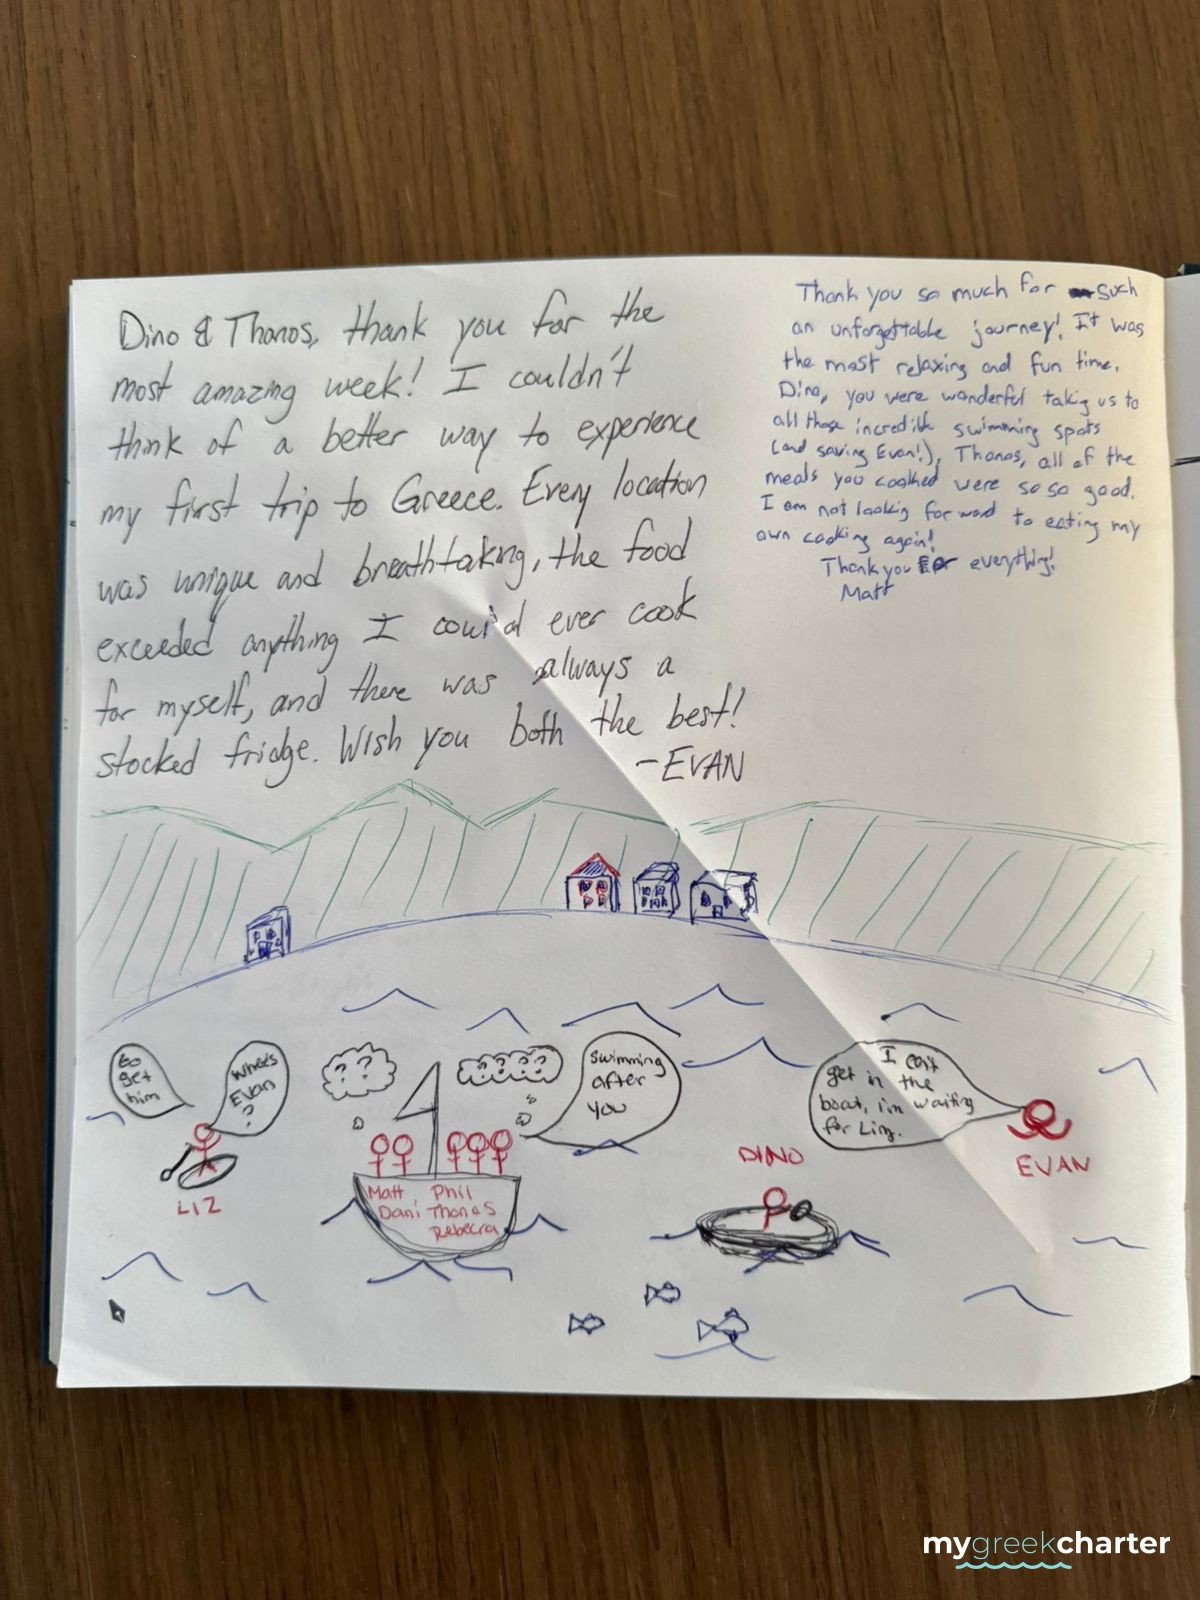 Dino & Thanos, thank you for the
most amazing week! I couldn't
think of a better way to experience
my first trip to Greece. Every location
was unique and breathtaking, the food
exceeded anything I could ever cook
for myself, and there was always a
stocked fridge. Wish you both the best!
-EVAN
Thank you so much for such
an unforgettable journey! It was
the most relaxing and fun time.
Dino, you were wonderful taking us to
all those incredible swimming spots
(and saving Evan!). Thanos, all of the
meals you cooked were so so good.
I am not looking forward to eating my
own cooking again!
Thank you for everything!
Matt
Go
get
him
Where's
Evan
?
? ?
? ? ? ?
Swimming
after
you
I can't
get in the
boat, i'm waiting
for Liz.
LIZ
Matt Phil
Dani Thanos
Rebecca
DINO
EVAN
mygreekcharter